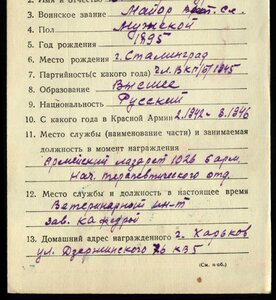 3. Воинское звание Майор вет. сл.
4. Пол Мужской
5. Год рождения 1895
6. Место рождения г. Сталинград
7. Партийность (с какого года) Чл. ВКП/б/ 1945
8. Образование Высшее
9. Национальность Русский
10. С какого года в Красной Армии 2.1942 - 3.1946
11. Место службы (наименование части) и занимаемая
должность в момент награждения
Армейский лазарет 1026 5 арм.
Нач. терапевтического отд.
12. Место службы и должность в настоящее время
Ветеринарный ин-т
зав. кафедрой
13. Домашний адрес награжденного г. Харьков
ул. Дзержинского кв 5
(См. н об.)